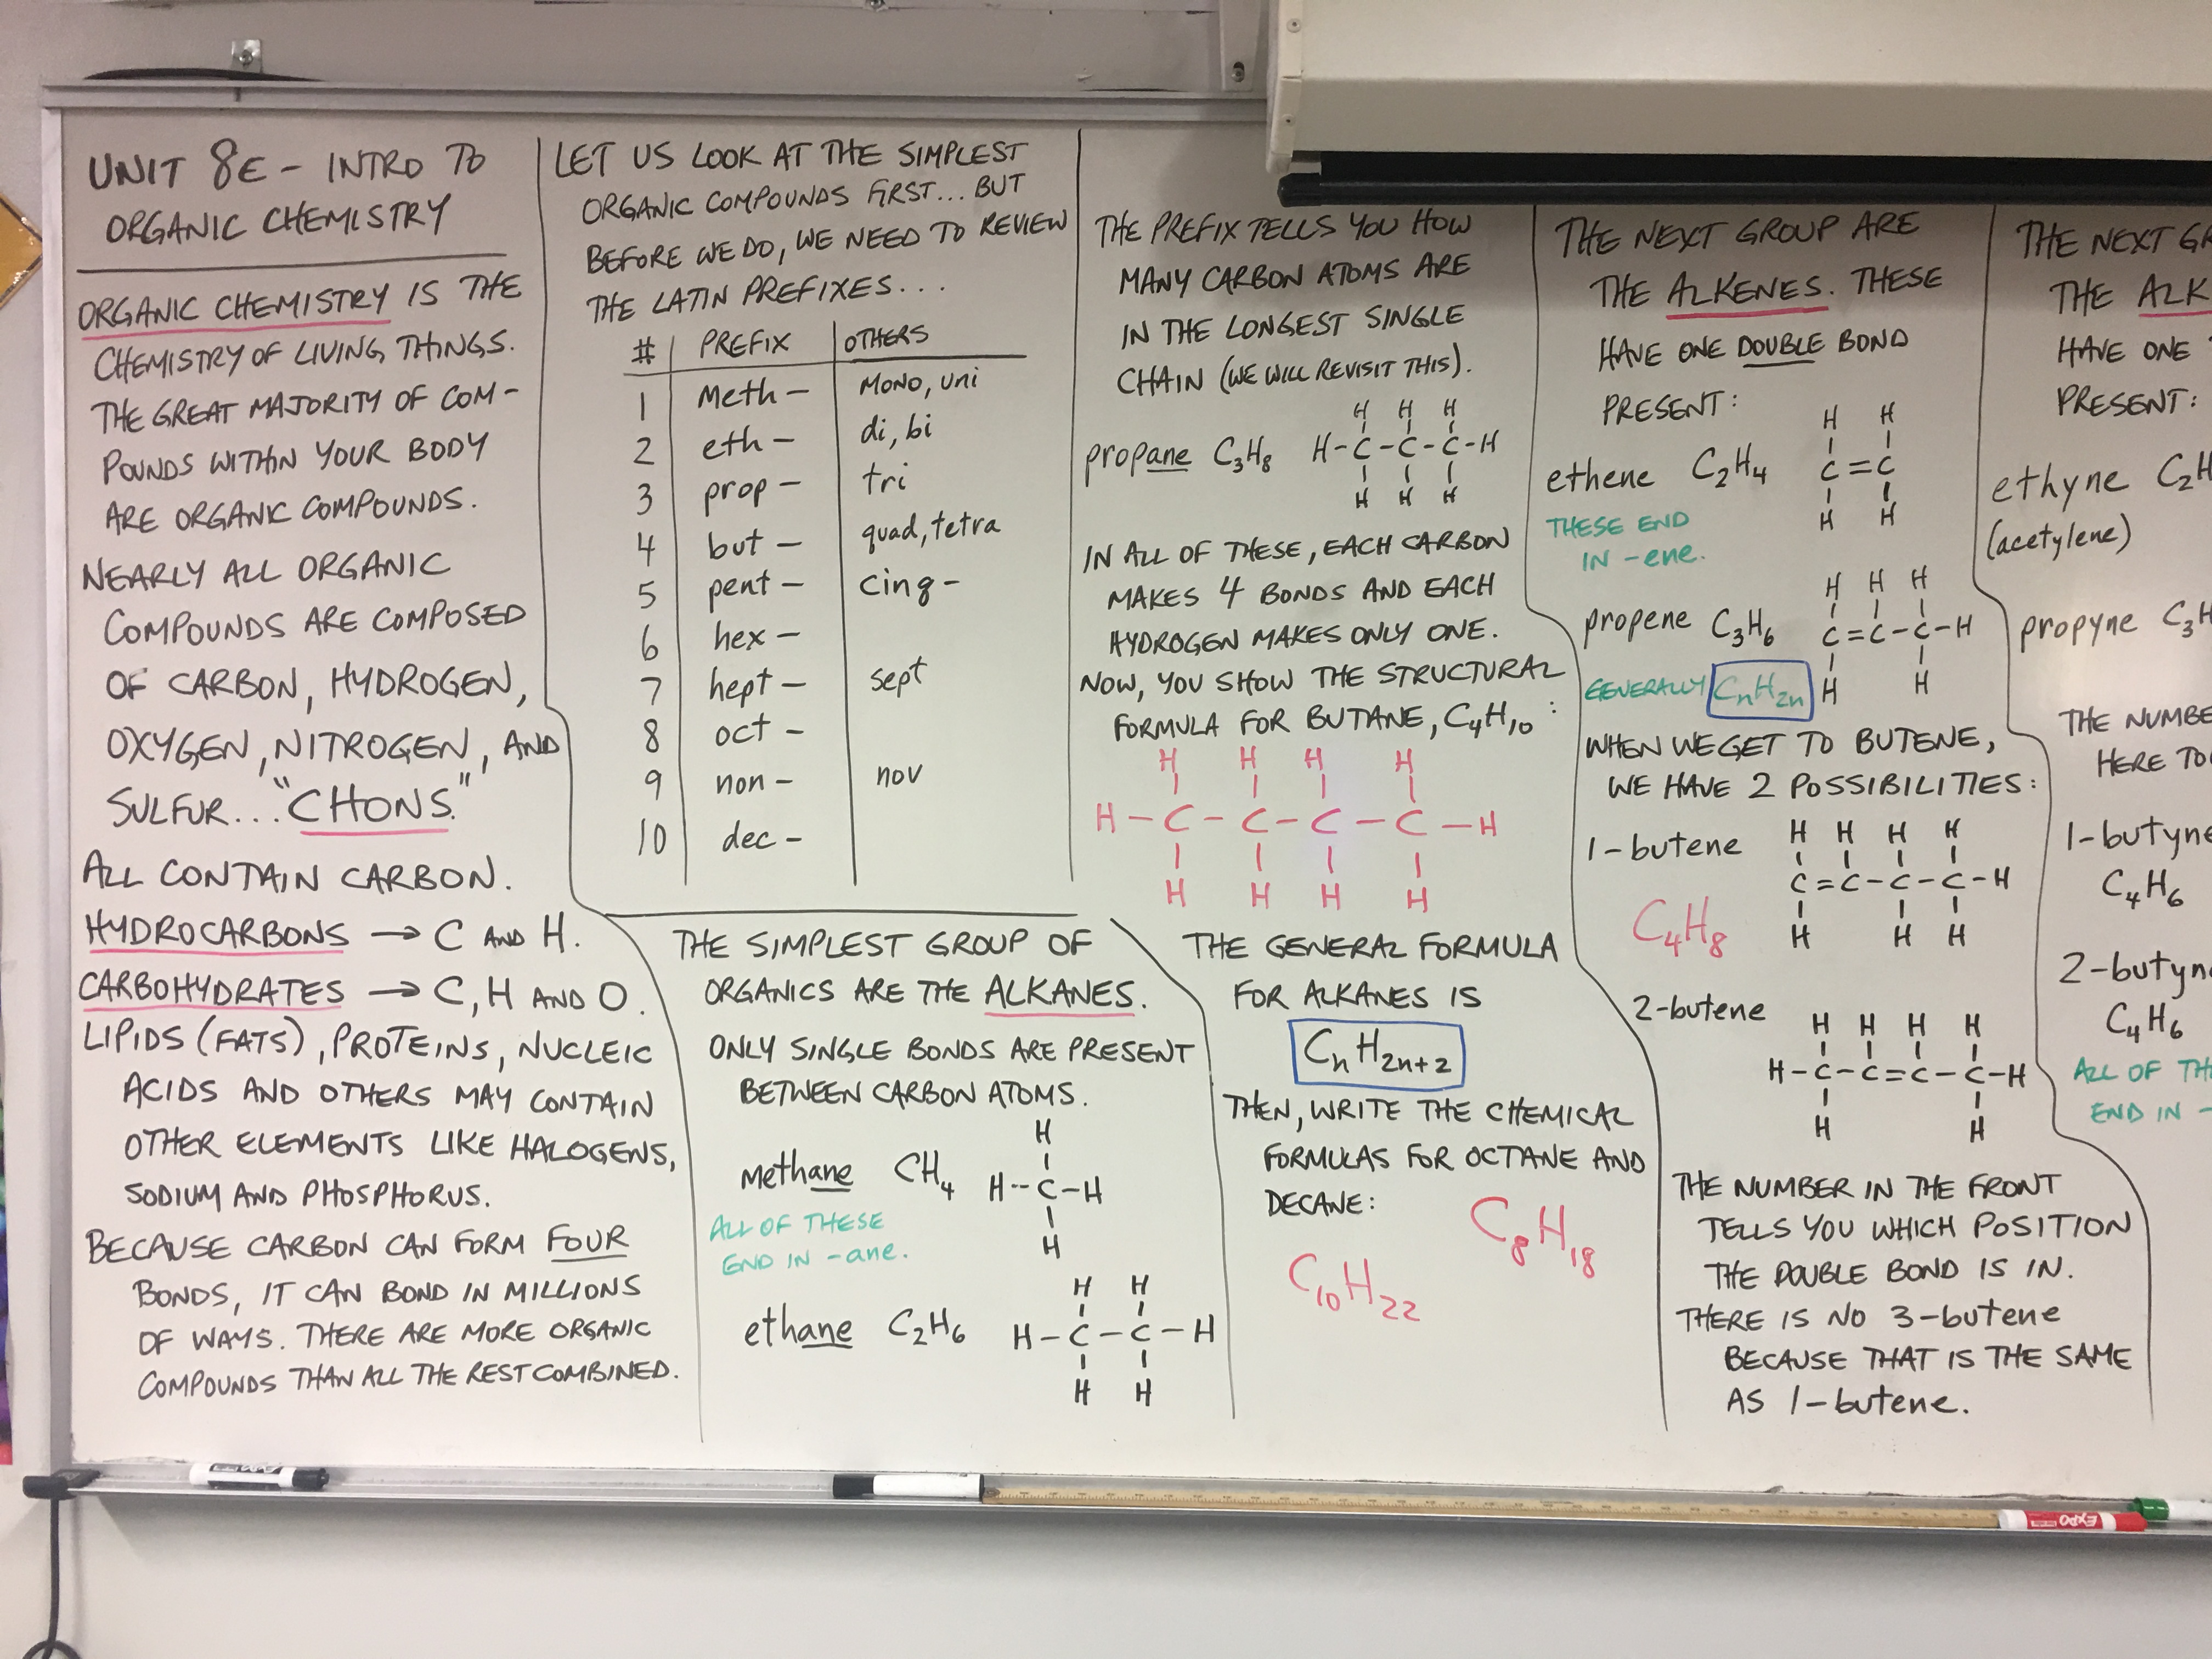 UNIT 8E - INTRO TO
ORGANIC CHEMISTRY
ORGANIC CHEMISTRY IS THE
CHEMISTRY OF LIVING THINGS.
THE GREAT MAJORITY OF COM-
POUNDS WITHIN YOUR BODY
ARE ORGANIC COMPOUNDS.
NEARLY ALL ORGANIC
COMPOUNDS ARE COMPOSED
OF CARBON, HYDROGEN,
OXYGEN, NITROGEN, AND
SULFUR... "CHONS."
ALL CONTAIN CARBON.
HYDROCARBONS → C AND H.
CARBOHYDRATES → C, H AND O.
LIPIDS (FATS), PROTEINS, NUCLEIC
ACIDS AND OTHERS MAY CONTAIN
OTHER ELEMENTS LIKE HALOGENS,
SODIUM AND PHOSPHORUS.
BECAUSE CARBON CAN FORM FOUR
BONDS, IT CAN BOND IN MILLIONS
OF WAYS. THERE ARE MORE ORGANIC
COMPOUNDS THAN ALL THE REST COMBINED.
LET US LOOK AT THE SIMPLEST
ORGANIC COMPOUNDS FIRST... BUT
BEFORE WE DO, WE NEED TO REVIEW
THE LATIN PREFIXES...
# PREFIX OTHERS
1 Meth- MONO, uni
2 eth- di, bi
3 prop- tri
4 but- quad, tetra
5 pent- cinq-
6 hex-
7 hept- sept
8 oct-
9 non- nov
10 dec-
THE SIMPLEST GROUP OF
ORGANICS ARE THE ALKANES.
ONLY SINGLE BONDS ARE PRESENT
BETWEEN CARBON ATOMS.
H
methane CH₄ H-C-H
H
ALL OF THESE
END IN -ane.
H H
ethane C₂H₆ H-C-C-H
H H
THE PREFIX TELLS YOU HOW
MANY CARBON ATOMS ARE
IN THE LONGEST SINGLE
CHAIN (WE WILL REVISIT THIS).
H H H
propane C₃H₈ H-C-C-C-H
H H H
IN ALL OF THESE, EACH CARBON
MAKES 4 BONDS AND EACH
HYDROGEN MAKES ONLY ONE.
NOW, YOU SHOW THE STRUCTURAL
FORMULA FOR BUTANE, C₄H₁₀:
H H H H
H-C-C-C-C-H
H H H H
THE GENERAL FORMULA
FOR ALKANES IS
CₙH₂ₙ₊₂
THEN, WRITE THE CHEMICAL
FORMULAS FOR OCTANE AND
DECANE:
C₈H₁₈
C₁₀H₂₂
THE NEXT GROUP ARE
THE ALKENES. THESE
HAVE ONE DOUBLE BOND
PRESENT:
H H
ethene C₂H₄ C=C
H H
THESE END
IN -ene.
H H H
propene C₃H₆ C=C-C-H
H H
GENERALLY CₙH₂ₙ
WHEN WE GET TO BUTENE,
WE HAVE 2 POSSIBILITIES:
H H H H
1-butene C=C-C-C-H
H H H
C₄H₈
2-butene
H H H H
H-C-C=C-C-H
H H
THE NUMBER IN THE FRONT
TELLS YOU WHICH POSITION
THE DOUBLE BOND IS IN.
THERE IS NO 3-butene
BECAUSE THAT IS THE SAME
AS 1-butene.
THE NEXT
THE
HAVE ONE
PRESENT:
ethyne C₂H
(acetylene)
propyne C₃H
THE
HERE
1-butyne
C₄H₆
2-butyn
C₄H₆
ALL OF
END IN -
EXPO